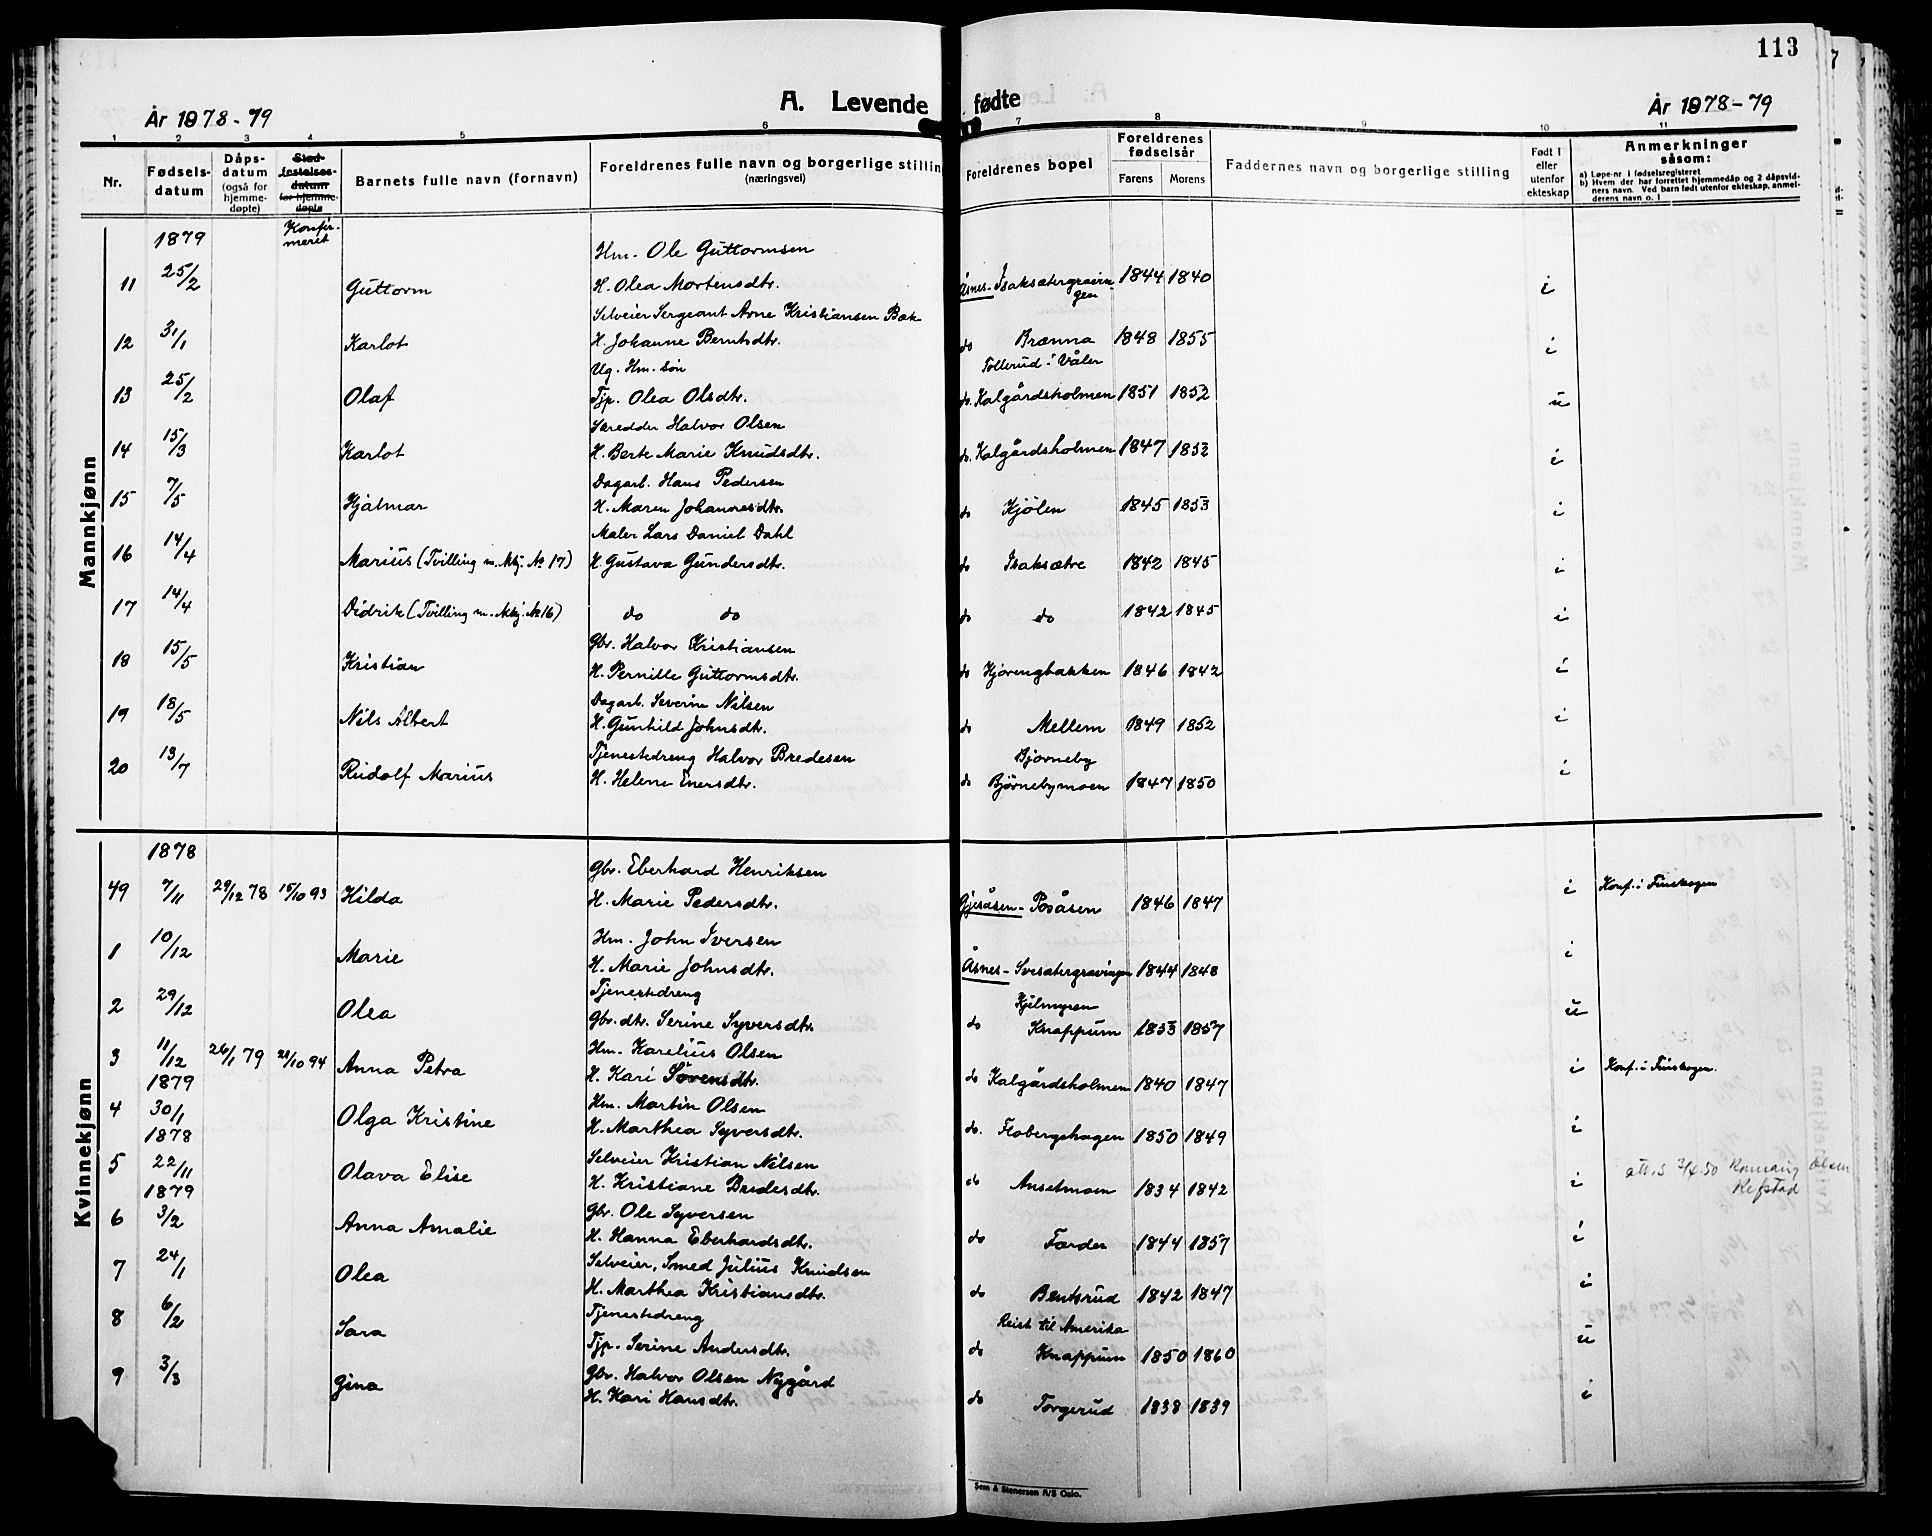 113
A. Levende fødte
År 1878-79
År 1878-79
1 2 3 4 5 6 7 8 9 10 11
Nr.
Fødsels-datum
Dåps-datum (også for hjemme-døpte)
Stad-festelses-datum for hjemme-døpte
Barnets fulle navn (fornavn)
Foreldrenes fulle navn og borgerlige stilling (næringsvei)
Foreldrenes bopel
Foreldrenes fødselsår
Farens Morens
Faddernes navn og borgerlige stilling
Født i eller utenfor ekteskap
Anmerkninger såsom:
a) Løpe-nr i fødselsregistret
b) Hvem der har forrettet hjemmedåp og 2 dåpsvidners navn. Ved barn født utenfor ekteskap, anmelderens navn o. l
Mannkjønn
1879 Konfir-meret
Hm. Ole Guttormsen
11 25/2 Guttorm H. Olea Mortensdtr. Åsnes- Isaksætergravingen 1844 1840 i
Selveier Sergeant Arne Kristiansen Bak
12 31/1 Karlot H. Johanne Berntsdtr. do Brænna 1848 1855 i
Ug. Hm. søn Tollerud i Våler
13 25/2 Olaf Tjp. Olea Olsdtr. do. Kalgårdsholmen 1851 1852 u
Skredder Halvor Olsen
14 15/3 Karlot H. Berte Marie Knudsdtr. do. Kalgårdsholmen 1847 1852 i
Dagarb. Hans Pedersen
15 7/5 Hjalmar H. Maren Johannesdtr. do Kjølen 1845 1853 i
Maler Lars Daniel Dahl
16 14/4 Marius (Tvilling m. Mkj. No 17) H. Gustava Gundersdtr. do Isaksætre 1842 1845 i
17 14/4 Didrik (Tvilling m. Mkj. No 16) do do do do 1842 1845 i
Gbr. Halvor Kristiansen
18 15/5 Kristian H. Pernille Guttormsdtr. do Hjørengbakken 1846 1842 i
Dagarb. Severin Nilsen
19 18/5 Nils Albert H. Gunhild Johnsdtr. do Mellem 1849 1852 i
Tjenestedreng Halvor Bredesen Bjørneby
20 13/7 Rudolf Marius H. Helene Enersdtr. do Bjørnebymoen 1847 1850 i
Kvinnekjønn
1878
Gbr. Eberhard Henriksen
49 7/11 29/12 78 15/10 93 Hilda H. Marie Pedersdtr. Gjesåsen- Posåsen 1846 1847 i Konf. i Finskogen
Hm. John Iversen
1 10/12 Marie H. Marie Johnsdtr. Åsnes- Svesætergravingen 1844 1848 i
Tjenestedreng Kjelmyren
2 29/12 Olea Gbr. dtr. Serine Syversdtr. do Knappum 1853 1857 u
Hm. Karelius Olsen
3 11/12 26/1 79 21/10 94 Anna Petra H. Kari Sørensdtr. do Kalgårdsholmen 1840 1847 i Konf. i Finskogen.
1879
Hm. Martin Olsen
4 30/1 Olga Kristine H. Marthea Syversdtr. do. Flobergshagen 1850 1849 i
1878
Selveier Kristian Nilsen
5 22/11 Olava Elise H. Kristiane Bredesdtr. do Anselmoen 1834 1842 i att.s 50 Olsen
Kefstad
1879
Gbr. Ole Syversen
6 3/2 Anna Amalie H. Hanna Eberhardsdtr. do Farder 1844 1857 i
Selveier, Smed Julius Knudsen
7 24/1 Olea H. Marthea Kristiansdtr. do Bentsrud 1842 1847 i
Tjenestedreng Reist til Amerika
8 6/2 Sara Tjp. Serine Andersdtr. do Knappum 1850 1860 u
Gbr. Halvor Olsen Nygård
9 3/3 Gina H. Kari Hansdtr. do Torgerud 1838 1839 i
Sem & Stenersen A/S Oslo.